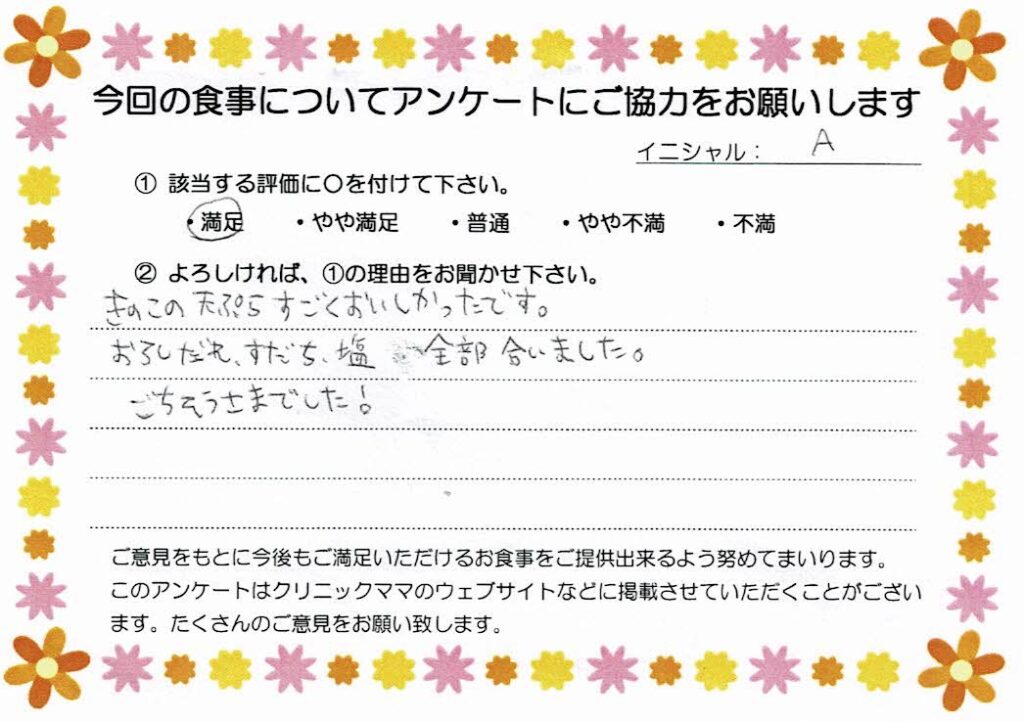 今回の食事についてアンケートにご協力をお願いします
イニシャル： A
① 該当する評価に〇を付けて下さい。
・満足 ・やや満足 ・普通 ・やや不満 ・不満
② よろしければ、①の理由をお聞かせ下さい。
きのこの天ぷらすごくおいしかったです。
おろしだれ、すだち、塩 全部合いました。
ごちそうさまでした！
ご意見をもとに今後もご満足いただけるお食事をご提供出来るよう努めてまいります。
このアンケートはクリニックママのウェブサイトなどに掲載させていただくことがござい
ます。たくさんのご意見をお願い致します。